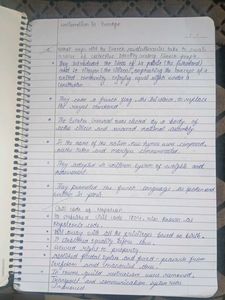 Nationalism in Europe
What steps did the French revolutionaries take to create
a sense of collective identity among French people
They introduced the ideas of la patrie (the fatherland)
and le citoyen (the citizen), emphasising the concept of a
united community enjoying equal rights under a
constitution
They chose a french flag, the tricolour to replace
the royal standard
The Estates General was elected by a body of
active citizens and renamed national assembly
In the name of the nation new hymns were composed,
oaths taken and martyrs commemorated
They adopted a uniform system of weights and
measurement
They promoted the french language as spoken and
written in paris
Civil code of Napoleon
Napoleonic code
Did away with all the privileges based on birth.
Established equality before law.
Secured right to property.
Abolished feudal system and freed peasants from
serfdom and manorial dues.
In towns, guild restrictions were removed.
Transport and communication system were
improved